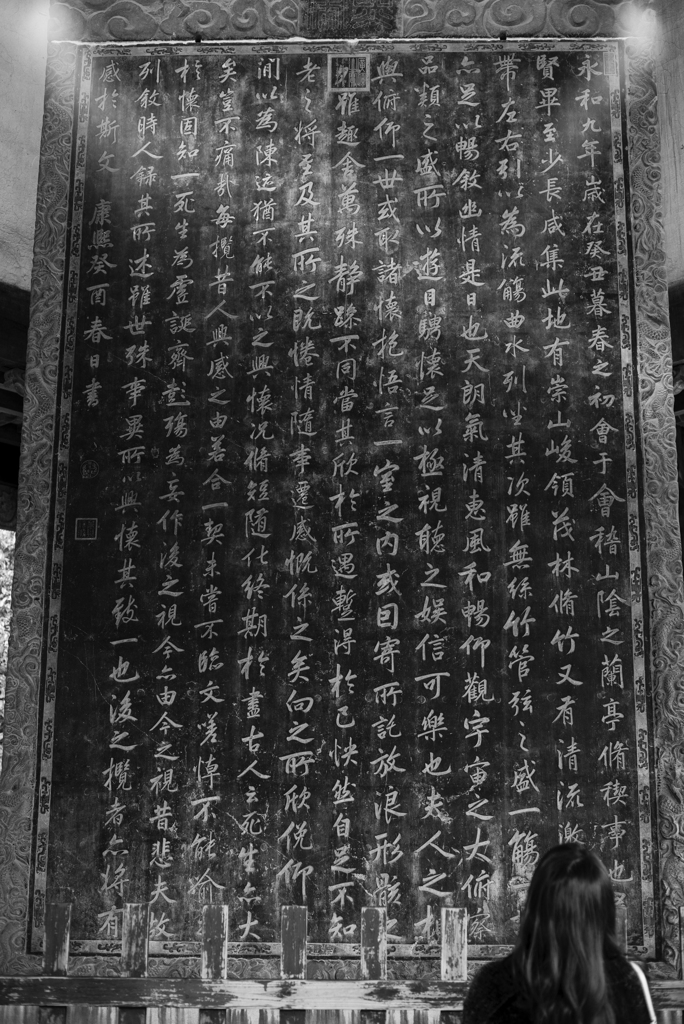 永和九年歲在癸丑暮春之初會于會稽山陰之蘭亭脩稧事也
賢畢至少長咸集此地有崇山峻領茂林脩竹又有清流激
帶左右引以為流觴曲水列坐其次雖無絲竹管弦之盛一觴
亦足以暢敘幽情是日也天朗氣清惠風和暢仰觀宇宙之大俯察
品類之盛所以遊目騁懷足以極視聽之娛信可樂也夫人之相
與俯仰一世或取諸懷抱悟言一室之內或因寄所託放浪形骸之
雖趣舍萬殊靜躁不同當其欣於所遇蹔得於己怏然自足不知
老之將至及其所之既惓情隨事遷感慨係之矣向之所欣俛仰
間以為陳迹猶不能不以之興懷況脩短隨化終期於盡古人云死生亦大
矣豈不痛哉每攬昔人興感之由若合一契未嘗不臨文嗟悼不能喻
於懷固知一死生為虛誕齊彭殤為妄作後之視今亦由今之視昔悲夫故
列敘時人錄其所述雖世殊事異所以興懷其致一也後之攬者亦將有
感於斯文 康熙癸酉春日書